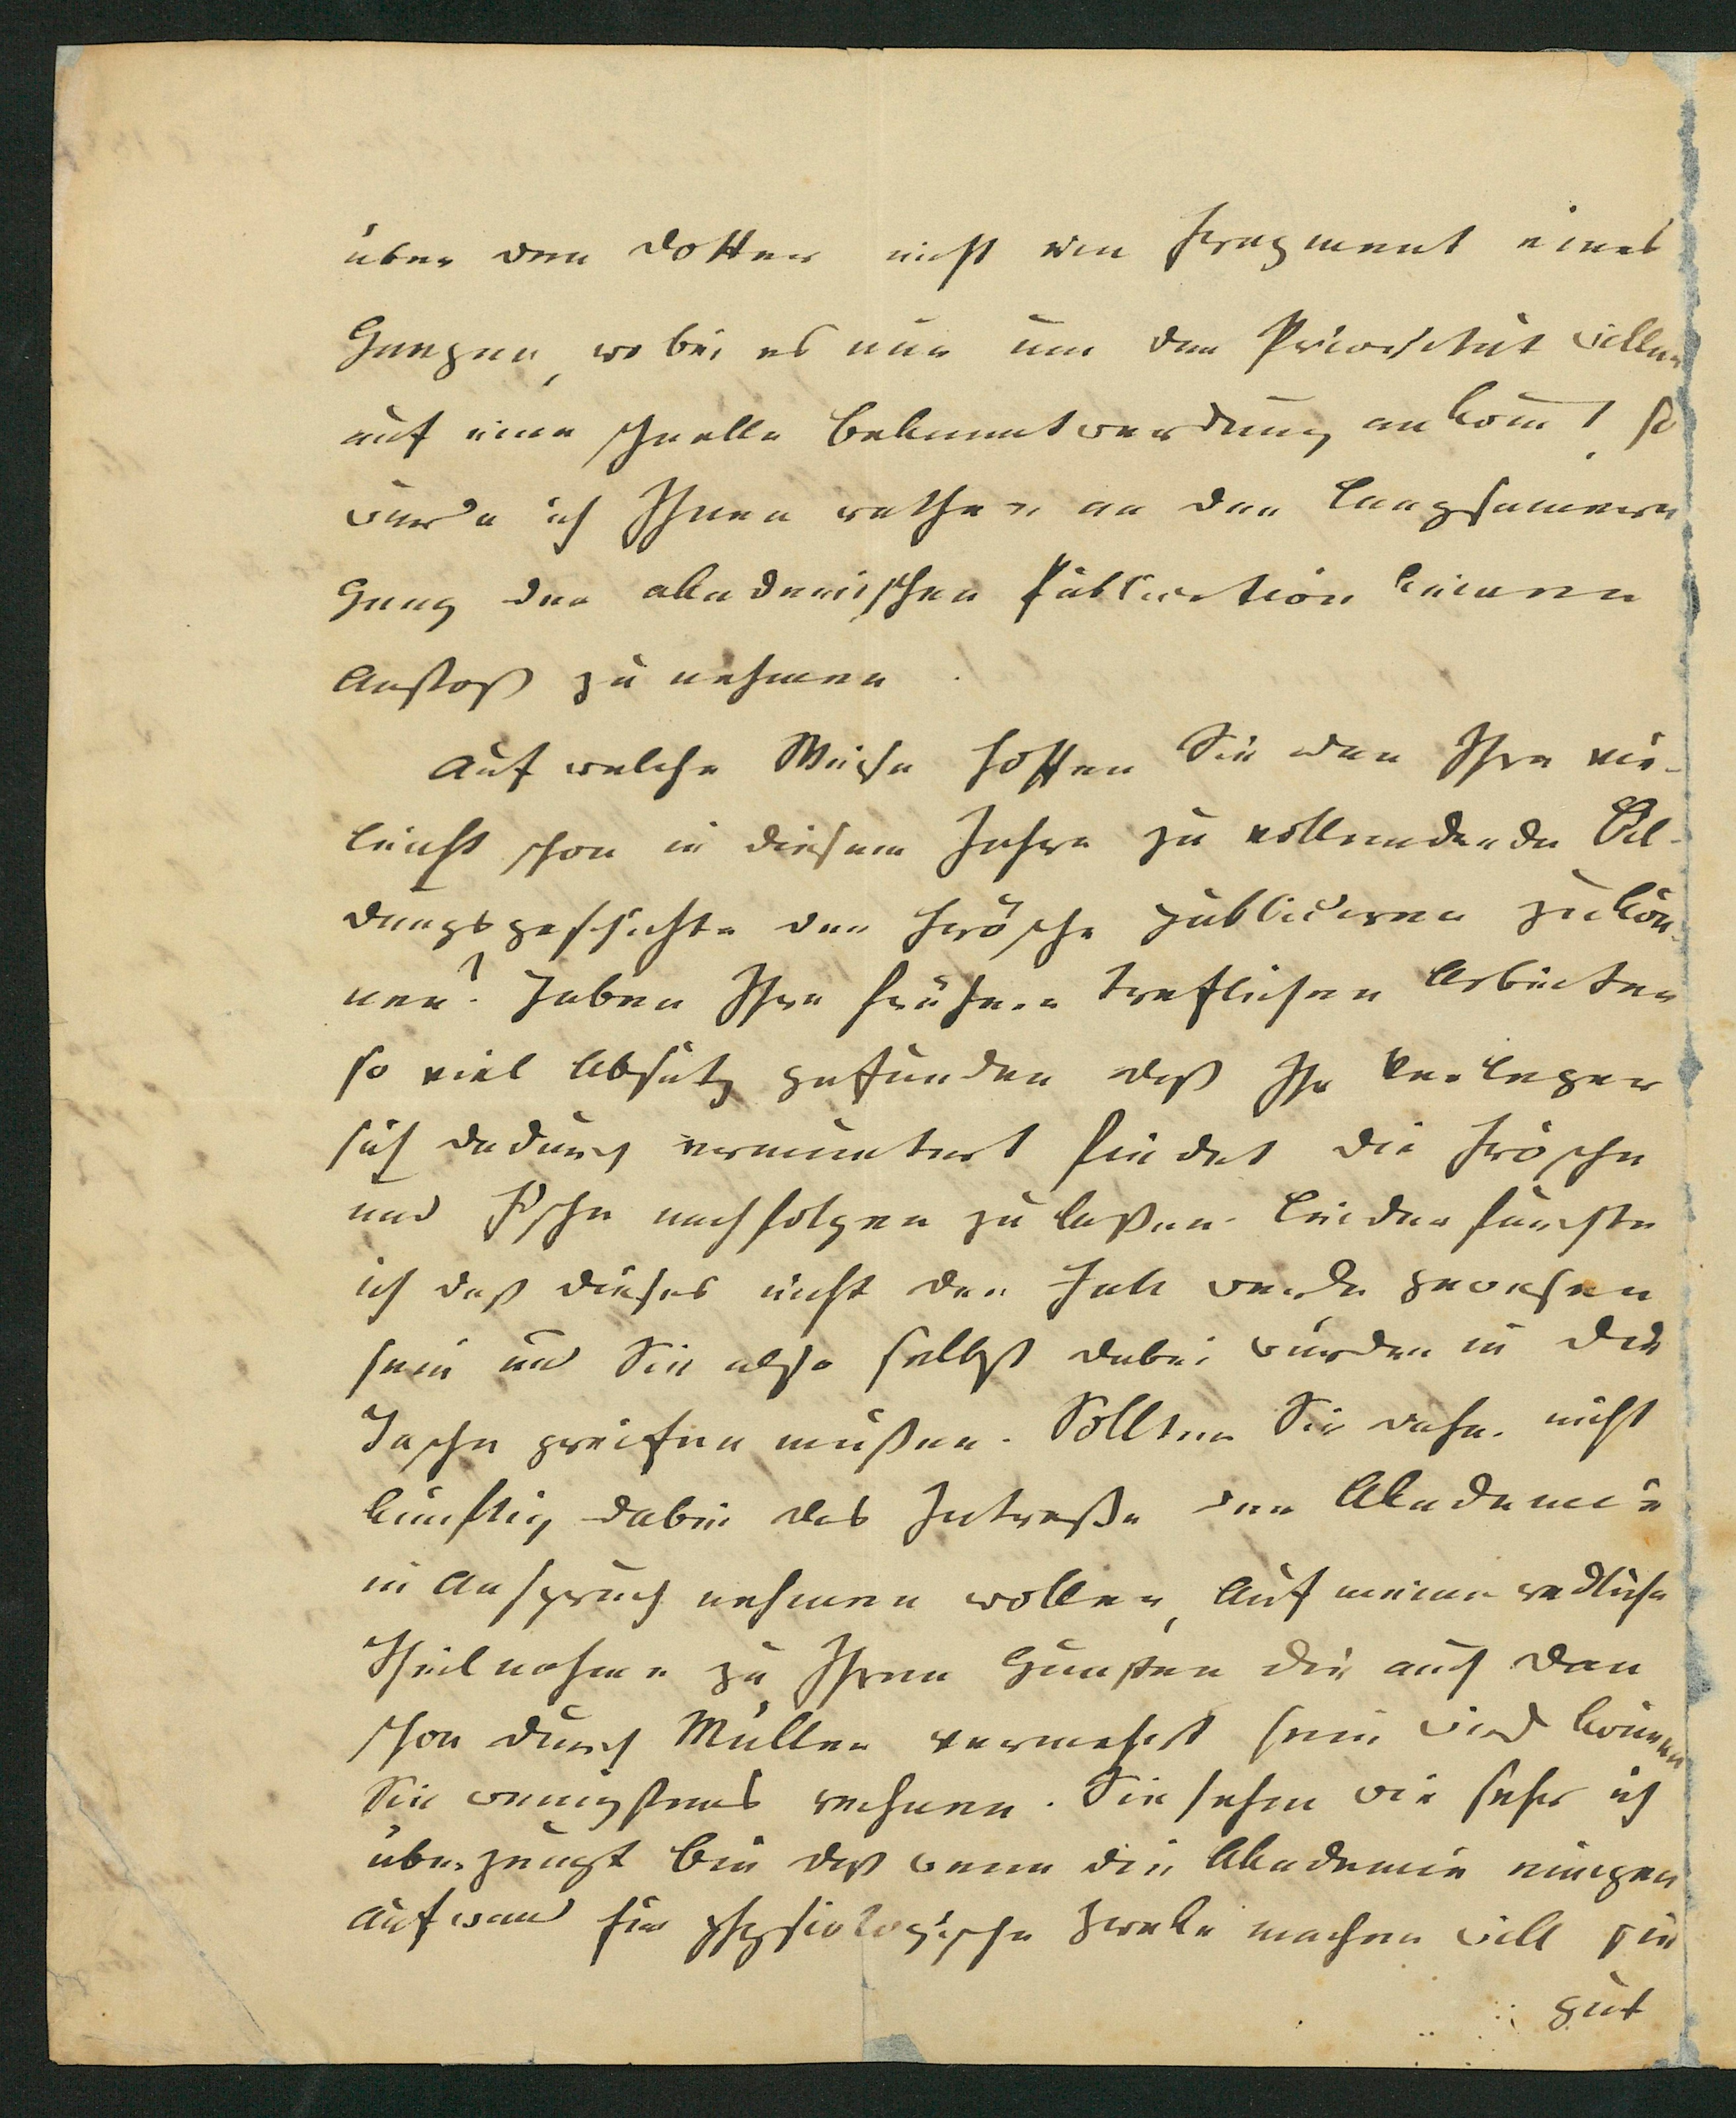 über den Dotter nicht ein Fragment eines
Ganzen, wobei es nur um der Priorität willen
auf eine schnelle Bekanntwerdung ankom̄t, so
würde ich Ihnen rathen an den langsamern
Gang der akademischen Publication keinen
Anstoß zu nehmen.
Auf welche Weise hoffen Sie den Ihre vie-
leicht schon in diesem Jahre zu vollendende Bil-
dungsgeschichte der Frösche publiciren zu kön-
nen? Haben Ihre frühern treflichen Arbeiten
so viel Absatz gefunden daß Ihr Verleger
sich dadurch ermuntert findet die Frösche
und Fische nachfolgen zu laßen. Leider fürchte
ich daß dieses nicht der Fall werde gewesen
sein und Sie also selbst dabei würden in die
Tasche greifen müßen. Sollten Sie daher nicht
künftig dabei das Intreße der Akademie
in Anspruch nehmen wollen, Auf meine redliche
Theilnahme zu Ihren Gunsten die auch dan
schon durch Müller vermehrt sein wird können
Sie wenigstens rechnen. Sie sehen wie sehr ich
überzeugt bin daß wenn die Akademie einigen
Aufwand für physiologische Zweke machen will sie
gut